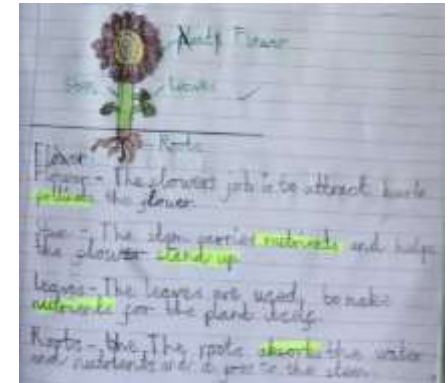 Flower
Stem Leaves
Roots
Flower
The flowers job is to attract
the flower.
The stem carries nutrients and helps
the flower stand up
Leaves - The leaves are used to make
nutrients for the plant
Roots - The roots absorb the water
and nutrients and it goes to the stem.